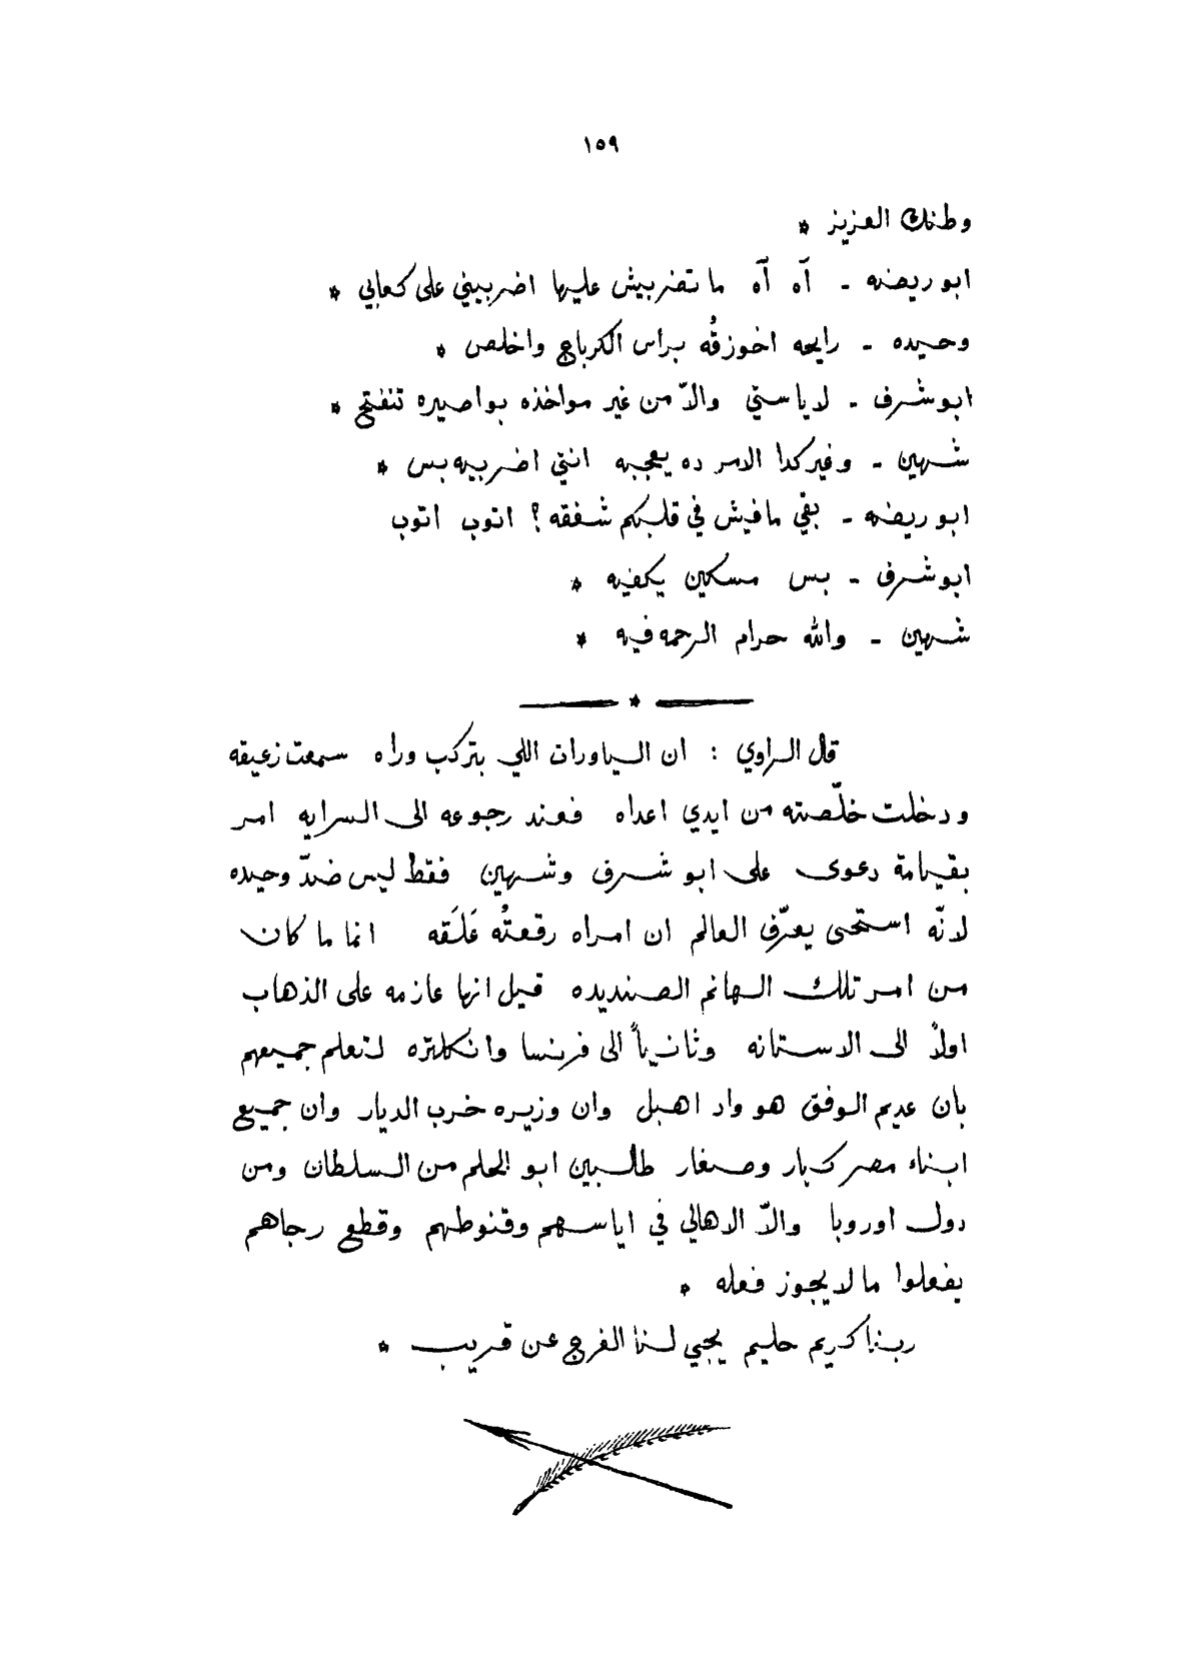 ١٥٩
وطنك العزيز *
ابو ريضه - آه آه ما تضربيش عليها اضربيني على كعابي *
وحيده - رايحه اخوزقُه براس الكرباج واخلص *
ابو شرف - لا يا ستي والاّ من غير مواخذه بواصيره تنفتح *
شهين - وغير كدا الامر ده يعجبه انتي اضربيه بس *
ابو ريضه - بقي مافيش في قلبكم شفقه ؟ اتوب اتوب
ابو شرف - بس مسكين يكفيه *
شهين - والله حرام الرحمه فيه *
*
قال الراوي : ان الياورات اللي بتركب وراه سمعت زعيقه
ودخلت خلّصته من ايدي اعداه فعند رجوعه الى السرايه امر
بقيامة دعوى على ابو شرف وشهين فقط ليس ضدّ وحيده
لانّه استحى يعرّف العالم ان امراه رقعتُه عَلَقه انما ما كان
من امر تلك الهانم الصنديده قيل انها عازمه على الذهاب
اولاً الى الاستانه وثانياً الى فرنسا وانكلتره لتعلم جميعهم
بان عديم الوفق هو واد اهبل وان وزيره خرب الديار وان جميع
ابناء مصر كبار وصغار طالبين ابو الحلم من السلطان ومن
دول اوروبا والاّ الاهالي في اياسهم وقنوطهم وقطع رجاهم
يفعلوا ما لا يجوز فعله *
ربنا كريم حليم يجيي لنا الفرج عن قريب *